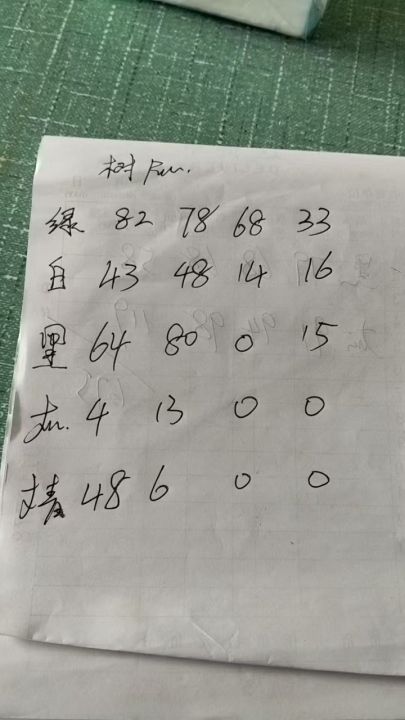 树
绿 82 78 68 33
白 43 48 14 16
黑 64 80 0 15
4 13 0 0
48 6 0 0